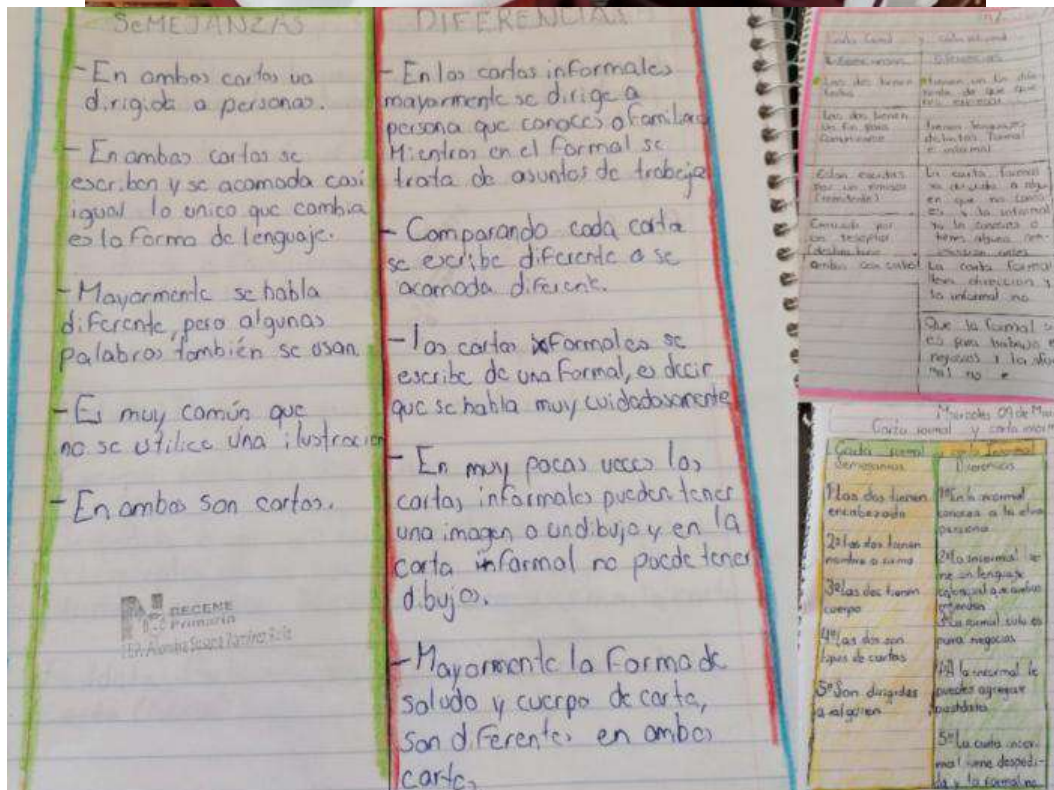 SEMEJANZAS
-En ambas cartas va
dirigida a personas.
-En ambas cartas se
escriben y se acomoda casi
igual lo unico que cambia
es la forma de lenguaje.
-Mayormente se habla
diferente, pero algunas
palabras también se usan.
-Es muy común que
no se utilice una ilustracion
-En ambas son cartas.
DECENE
Primaria
DIFERENCIAS
-En las cartas informales
mayormente se dirige a
persona que conoces o familiare
Mientras en el formal se
trata de asuntos de trabajo
-Comparando cada carta
se escribe diferente o se
acomoda diferente.
-las cartas formales se
escribe de una formal, es decir
que se habla muy cuidadosamente
-En muy pocas veces las
cartas informales pueden tener
una imagen o un dibujo y en la
carta informal no puede tener
dibujos.
-Mayormente la forma de
saludo y cuerpo de carta,
son diferentes en ambas
cartas
Las dos tienen
Las dos tienen
un fin para
comunicarse
tienen lenguajes
distintos formal
e informal
Estan escritas
por un emisor
(remitente)
La carta formal
va dirigida a algui
en que no cono
es y la informal
ya la conoces o
tienes alguna
Enviada por
un receptor
ambas son cartas
La carta formal
tiene direccion y
la informal no
Que la formal
es para trabajo
negocios y la
mal no
Miercoles 09 de
Carta formal y carta
Carta formal y carta Informal
Semejanzas
Diferencias
1º Las dos tienen
encabezado
2º las dos tienen
nombre o
3º las dos tienen
cuerpo
4º las dos son
tipos de cartas
5º Son dirigidas
a alguien
1º En la informal
conoces a la otra
persona
2º La informal
un lenguaje
coloquial que ambos
entiendan
3º La formal solo es
para negocios
4º A la informal le
puedes agregar
postdata
5º La carta infor-
mal tiene despedi-
da y la formal no